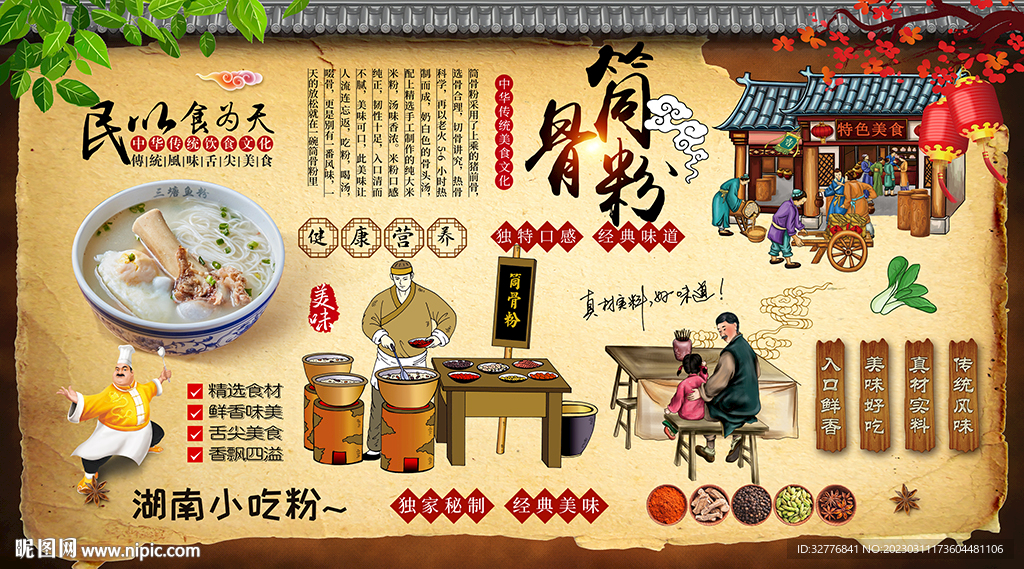 民以食为天
中华传统饮食文化
傳統風味舌尖美食
三塘鱼粉
筒骨粉采用了上乘的猪前骨,
选骨合理，切骨讲究，热骨
科学，再以老火 5-6 小时热
制而成，奶白色的骨头汤，
配上精选手工制作的纯大米
米粉，汤味香浓、米粉口感
纯正、韧性十足，入口清而
不腻，美味可口，此美味让
人流连忘返，吃粉，喝汤，
啜骨，更是别有一番风味，一
天的放松就在一碗筒骨粉里
中华传统美食文化
筒骨粉
特色美食
健康营养
独特口感 经典味道
美味
筒骨粉
真材实料,好味道!
入口鲜香
美味好吃
真材实料
传统风味
精选食材
鲜香味美
舌尖美食
香飘四溢
湖南小吃粉~
独家秘制 经典美味
昵图网 www.nipic.com
ID:32776841 NO:20230311173604481106